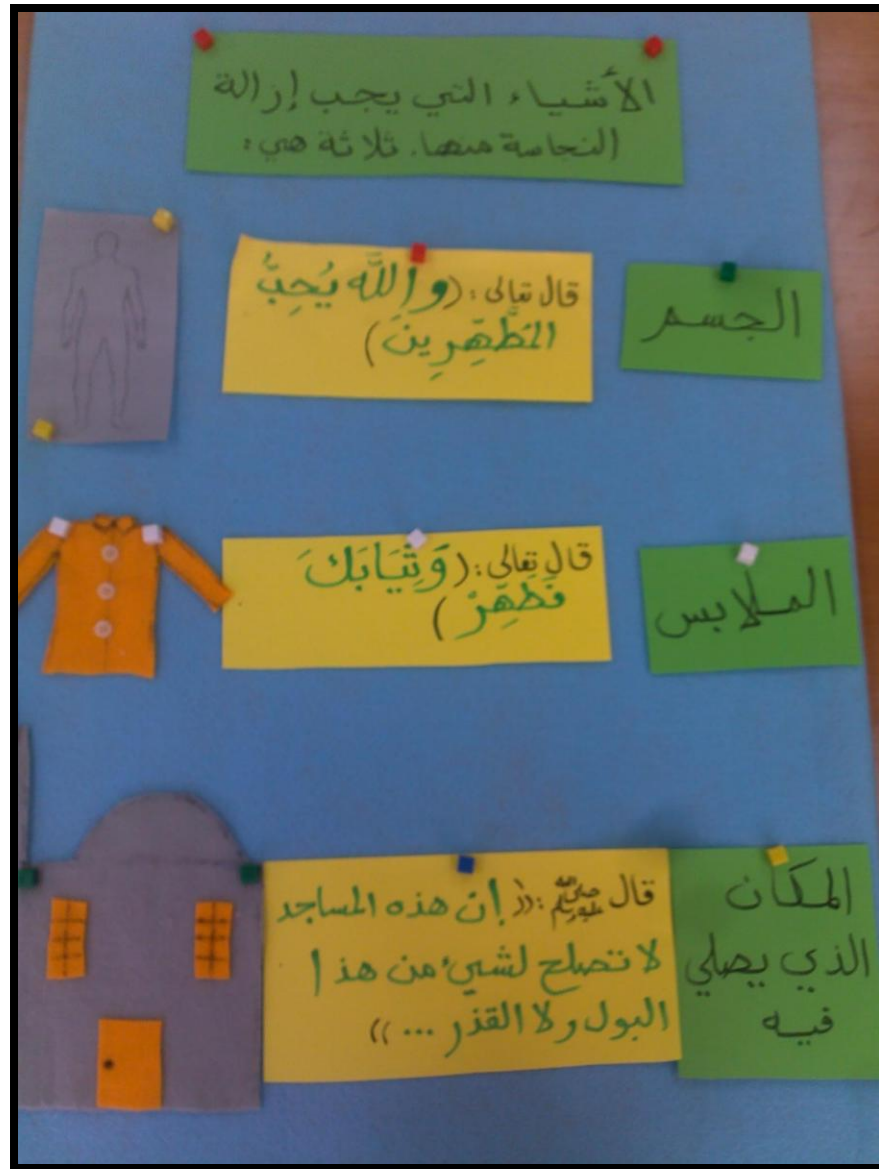 الأشياء التي يجب إزالة
النجاسة منها. ثلاثة هي:
الجسم
قال تعالى: (واللَّه يُحِبُّ
المُطَّهِّرِينَ)
الملابس
قال تعالى: (وَثِيَابَكَ
فَطَهِّرْ)
المكان
الذي يصلي
فيه
قال ﷺ: ((إن هذه المساجد
لا تصلح لشيء من هذا
البول ولا القذر ...))